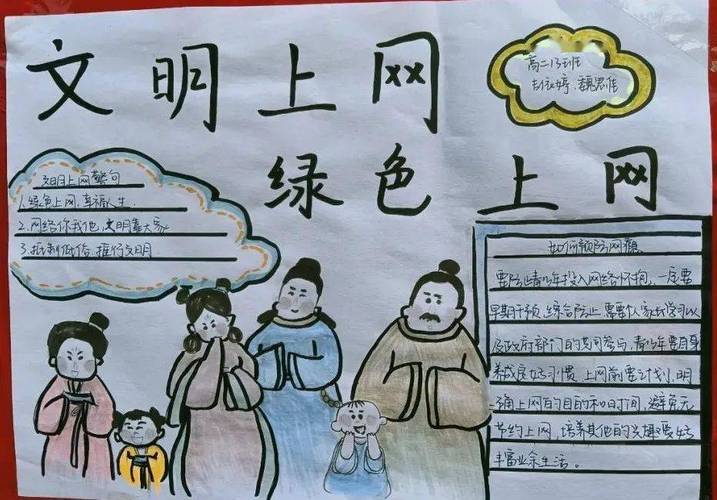 文明上网
绿色上网
高二13班
文明上网警句
1.绿色上网,幸福人生.
2.网络你我他,文明靠大家
3.抵制低俗,推行文明
如何预防网瘾
要防止青少年投入网络怀抱,一定要
早期干预,综合防止,需要个人家庭学习以
及政府部门的共同参与,青少年要自身
养成良好习惯 上网前要计划,明
确上网的目的和时间,避免无
节约上网,培养其他的兴趣爱好
丰富业余生活。